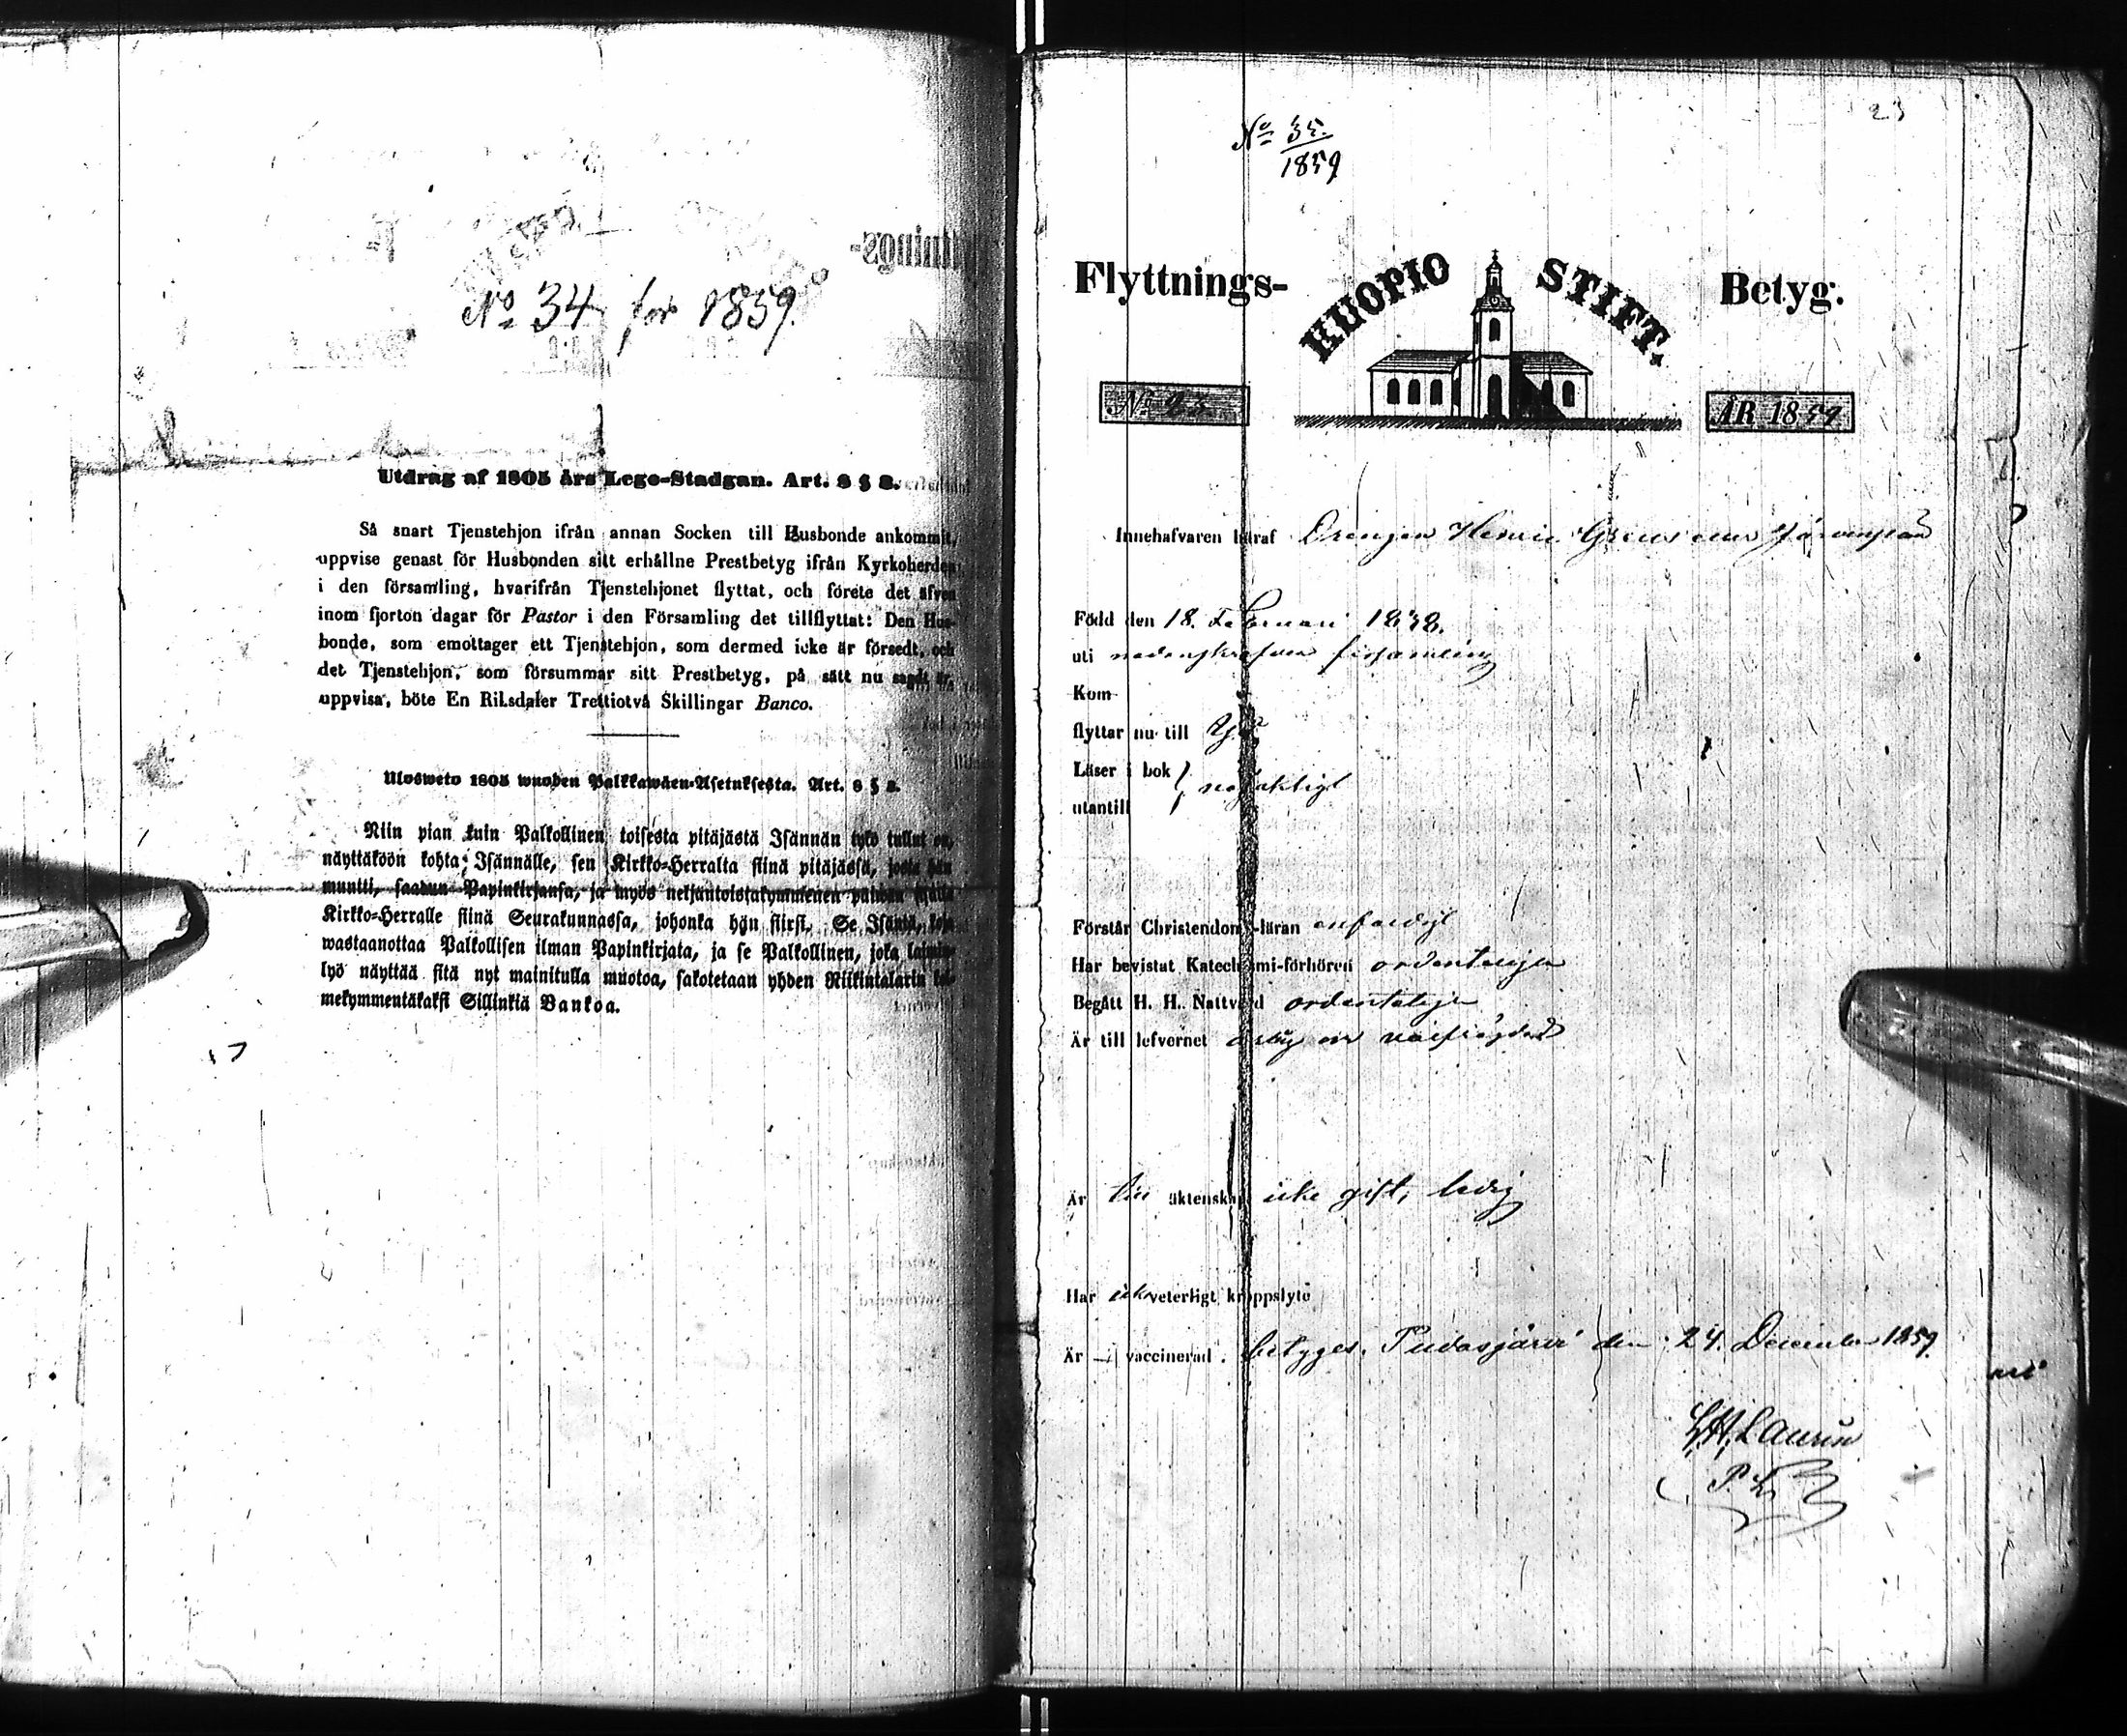 No 34 for 1859.
Utdrag af 1805 års Lego-Stadgan. Art. 8 § 8.
Så snart Tjenstehjon ifrån annan Socken till Husbonde ankommit,
uppvise genast för Husbonden sitt erhållne Prestbetyg ifrån Kyrkoherden
i den församling, hvarifrån Tjenstehjonet flyttat, och förete det äfven
inom fjorton dagar för Pastor i den Församling det tillflyttat: Den Hus-
bonde, som emottager ett Tjenstehjon, som dermed icke är försedt, och
det Tjenstehjon, som försummar sitt Prestbetyg, på sätt nu sagdt är,
uppvisa, böte En Riksdaler Trettiotvå Skillingar Banco.
Ulosweto 1805 wuoden Palkkawäen-Asetuksesta. Art. 8 § 8.
Niin pian kuin Palkollinen toisesta pitäjästä Isännän tykö tullut on,
näyttäköön kohta Isännälle, sen Kirkko-Herralta siinä pitäjässä, josta hän
muutti, saadun Papinkirjansa, ja myös neljäntoistakymmenen päiwän sisällä
Kirkko-Herralle siinä Seurakunnassa, johonka hän siirsi. Se Isäntä, joka
wastaanottaa Palkollisen ilman Papinkirjata, ja se Palkollinen, joka laimin-
lyö näyttää sitä nyt mainitulla muotoa, sakotetaan yhden Riikintalarin kol-
mekymmentäkaksi Sillinkiä Bankoa.
23
No 35.
1859
Flyttnings- KUOPIO STIFT. Betyg.
No 23. ÅR 1859
Innehafvaren häraf Drengen Henric
Född den 18. Februari 1838.
uti nedanskrefven församling
Kom
flyttar nu till
Läser i bok
utantill nöjaktigt
Förstår Christendoms-läran enfaldigt
Har bevistat Katechismi-förhören ordenteligen
Begått H. H. Nattvard ordenteligen
Är till lefvernet ärlig och välfrägdad
Är till äktenskap icke gift, ledig
Har icke veterligt kroppslyte
Är vaccinerad. betyges. Pudasjärvi den 24. December 1859.
Laurin